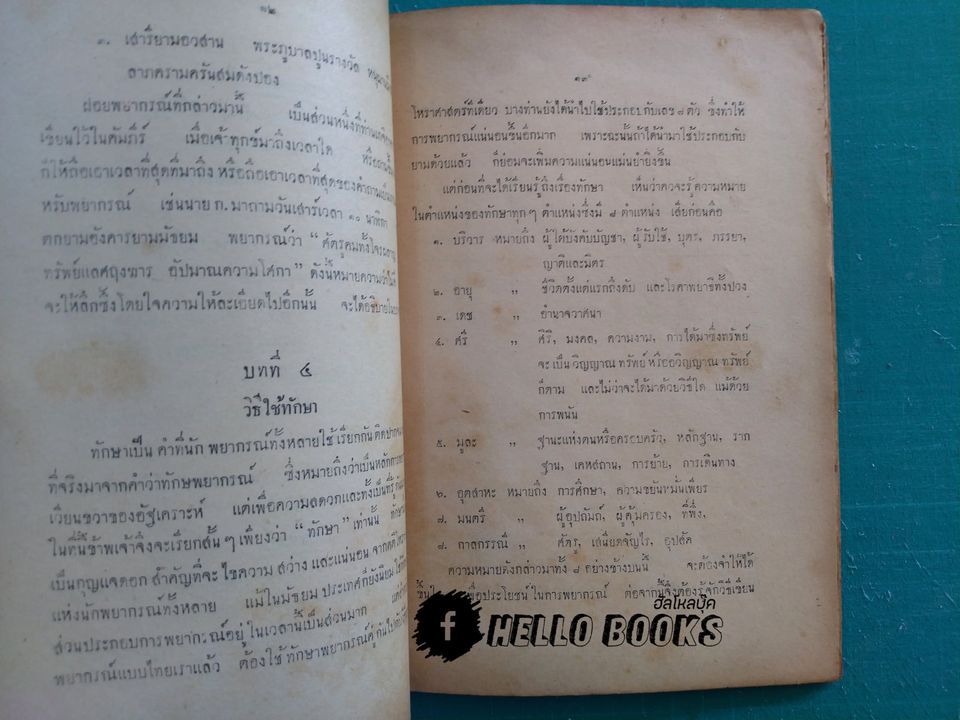 ๑๒
๓. เสาริยามอวสาน พระภูบาลปูนรางวัล
ลาภครามครันสมดังปอง
ฝอยพยากรณ์ที่กล่าวมานี้ เป็นส่วนหนึ่งที่ท่าน
เขียนไว้ในคัมภีร์ เมื่อเจ้าทุกข์มาถึงเวลาใด
ก็ให้ถือเอาเวลาที่สุดที่มาถึง หรือถือเอาเวลาที่สุดของคำถาม
หรับพยากรณ์ เช่นนาย ก. มาถามวันเสาร์เวลา ๑๐ นาฬิกา
ตกยามอังคารยามมัธยม พยากรณ์ว่า “ ศัตรูคุมทั้งโจร
ทรัพย์แลศฤงฆาร อัปมาณความโศกา ” ดังนี้หมายความว่า
จะให้ลึกซึ้งโดยใจความให้ละเอียดไปอีกนั้น จะได้อธิบาย
บทที่ ๔
วิธีใช้ทักษา
ทักษาเป็น คำที่นัก พยากรณ์ทั้งหลายใช้ เรียกกันติดปาก
ที่จริงมาจากคำว่าทักษพยากรณ์ ซึ่งหมายถึงว่าเป็นหลักการ
เวียนขวาของอัฐเคราะห์ แต่เพื่อความสดวกและทั้งเป็นที่รู้
ในที่นี้ข้าพเจ้าจึงจะเรียกสั้น ๆ เพียงว่า “ ทักษา ” เท่านั้น ทักษา
เป็นกุญแจดอก สำคัญที่จะ ไขความ สว่าง และแน่นอน จากคดี
แห่งนักพยากรณ์ทั้งหลาย แม้ในมัธยม ประเทศก็ยังนิยม
ส่วนประกอบการพยากรณ์อยู่ ในเวลานี้เป็นส่วนมาก
พยากรณ์แบบไทยเราแล้ว ต้องใช้ ทักษาพยากรณ์คู่กัน
๑๓
โหราศาสตร์ทีเดียว บางท่านยังได้นำไปใช้ประกอบกับเลข ๗ ตัว ซึ่งทำให้
การพยากรณ์แน่นอนขึ้นอีกมาก เพราะฉะนั้นถ้าได้นำมาใช้ประกอบกับ
ยามด้วยแล้ว ก็ย่อมจะเพิ่มความแน่นอนแม่นยำยิ่งขึ้น
แต่ก่อนที่จะได้เรียนรู้ถึงเรื่องทักษา เห็นว่าควรจะรู้ความหมาย
ในตำแหน่งของทักษาทุก ๆ ตำแหน่งซึ่งมี ๘ ตำแหน่ง เสียก่อนคือ
๑. บริวาร หมายถึง ผู้ใต้บังคับบัญชา, ผู้รับใช้, บุตร, ภรรยา,
ญาติและมิตร
๒. อายุ „ ชีวิตตั้งแต่แรกถึงดับ และโรคาพยาธิทั้งปวง
๓. เดช „ อำนาจวาศนา
๔. ศรี „ ศิริ, มงคล, ความงาม, การได้มาซึ่งทรัพย์
จะ เป็น วิญญาณ ทรัพย์ หรืออวิญญาณ ทรัพย์
ก็ตาม และไม่ว่าจะได้มาด้วยวิธีใด แม้ด้วย
การพนัน
๕. มูละ „ ฐานะแห่งตนหรือครอบครัว, หลักฐาน, ราก
ฐาน, เคหสถาน, การย้าย, การเดินทาง
๖. อุตสาหะ หมายถึง การศึกษา, ความขยันหมั่นเพียร
๗. มนตรี „ ผู้อุปถัมภ์, ผู้คุ้มครอง, ที่พึ่ง,
๘. กาลกรรณี „ ศัตรู, เสนียดจัญไร, อุปสัค
ความหมายดังกล่าวมาทั้ง ๘ อย่างข้างบนนี้ จะต้องจำให้ได้
ขึ้นใจ เพื่อประโยชน์ ในการพยากรณ์ ต่อจากนี้จึงต้องรู้จักวิธีเขียน
ฮัลโหลบุ๊ค
f HELLO BOOKS